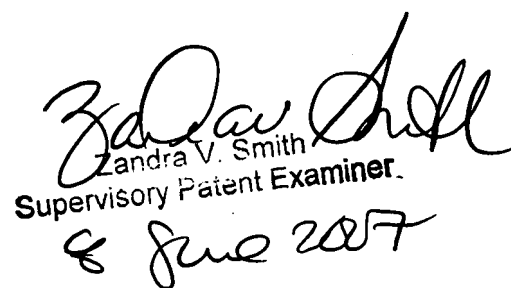 Zandra V. Smith
Zandra V. Smith
Supervisory Patent Examiner
8 June 2007